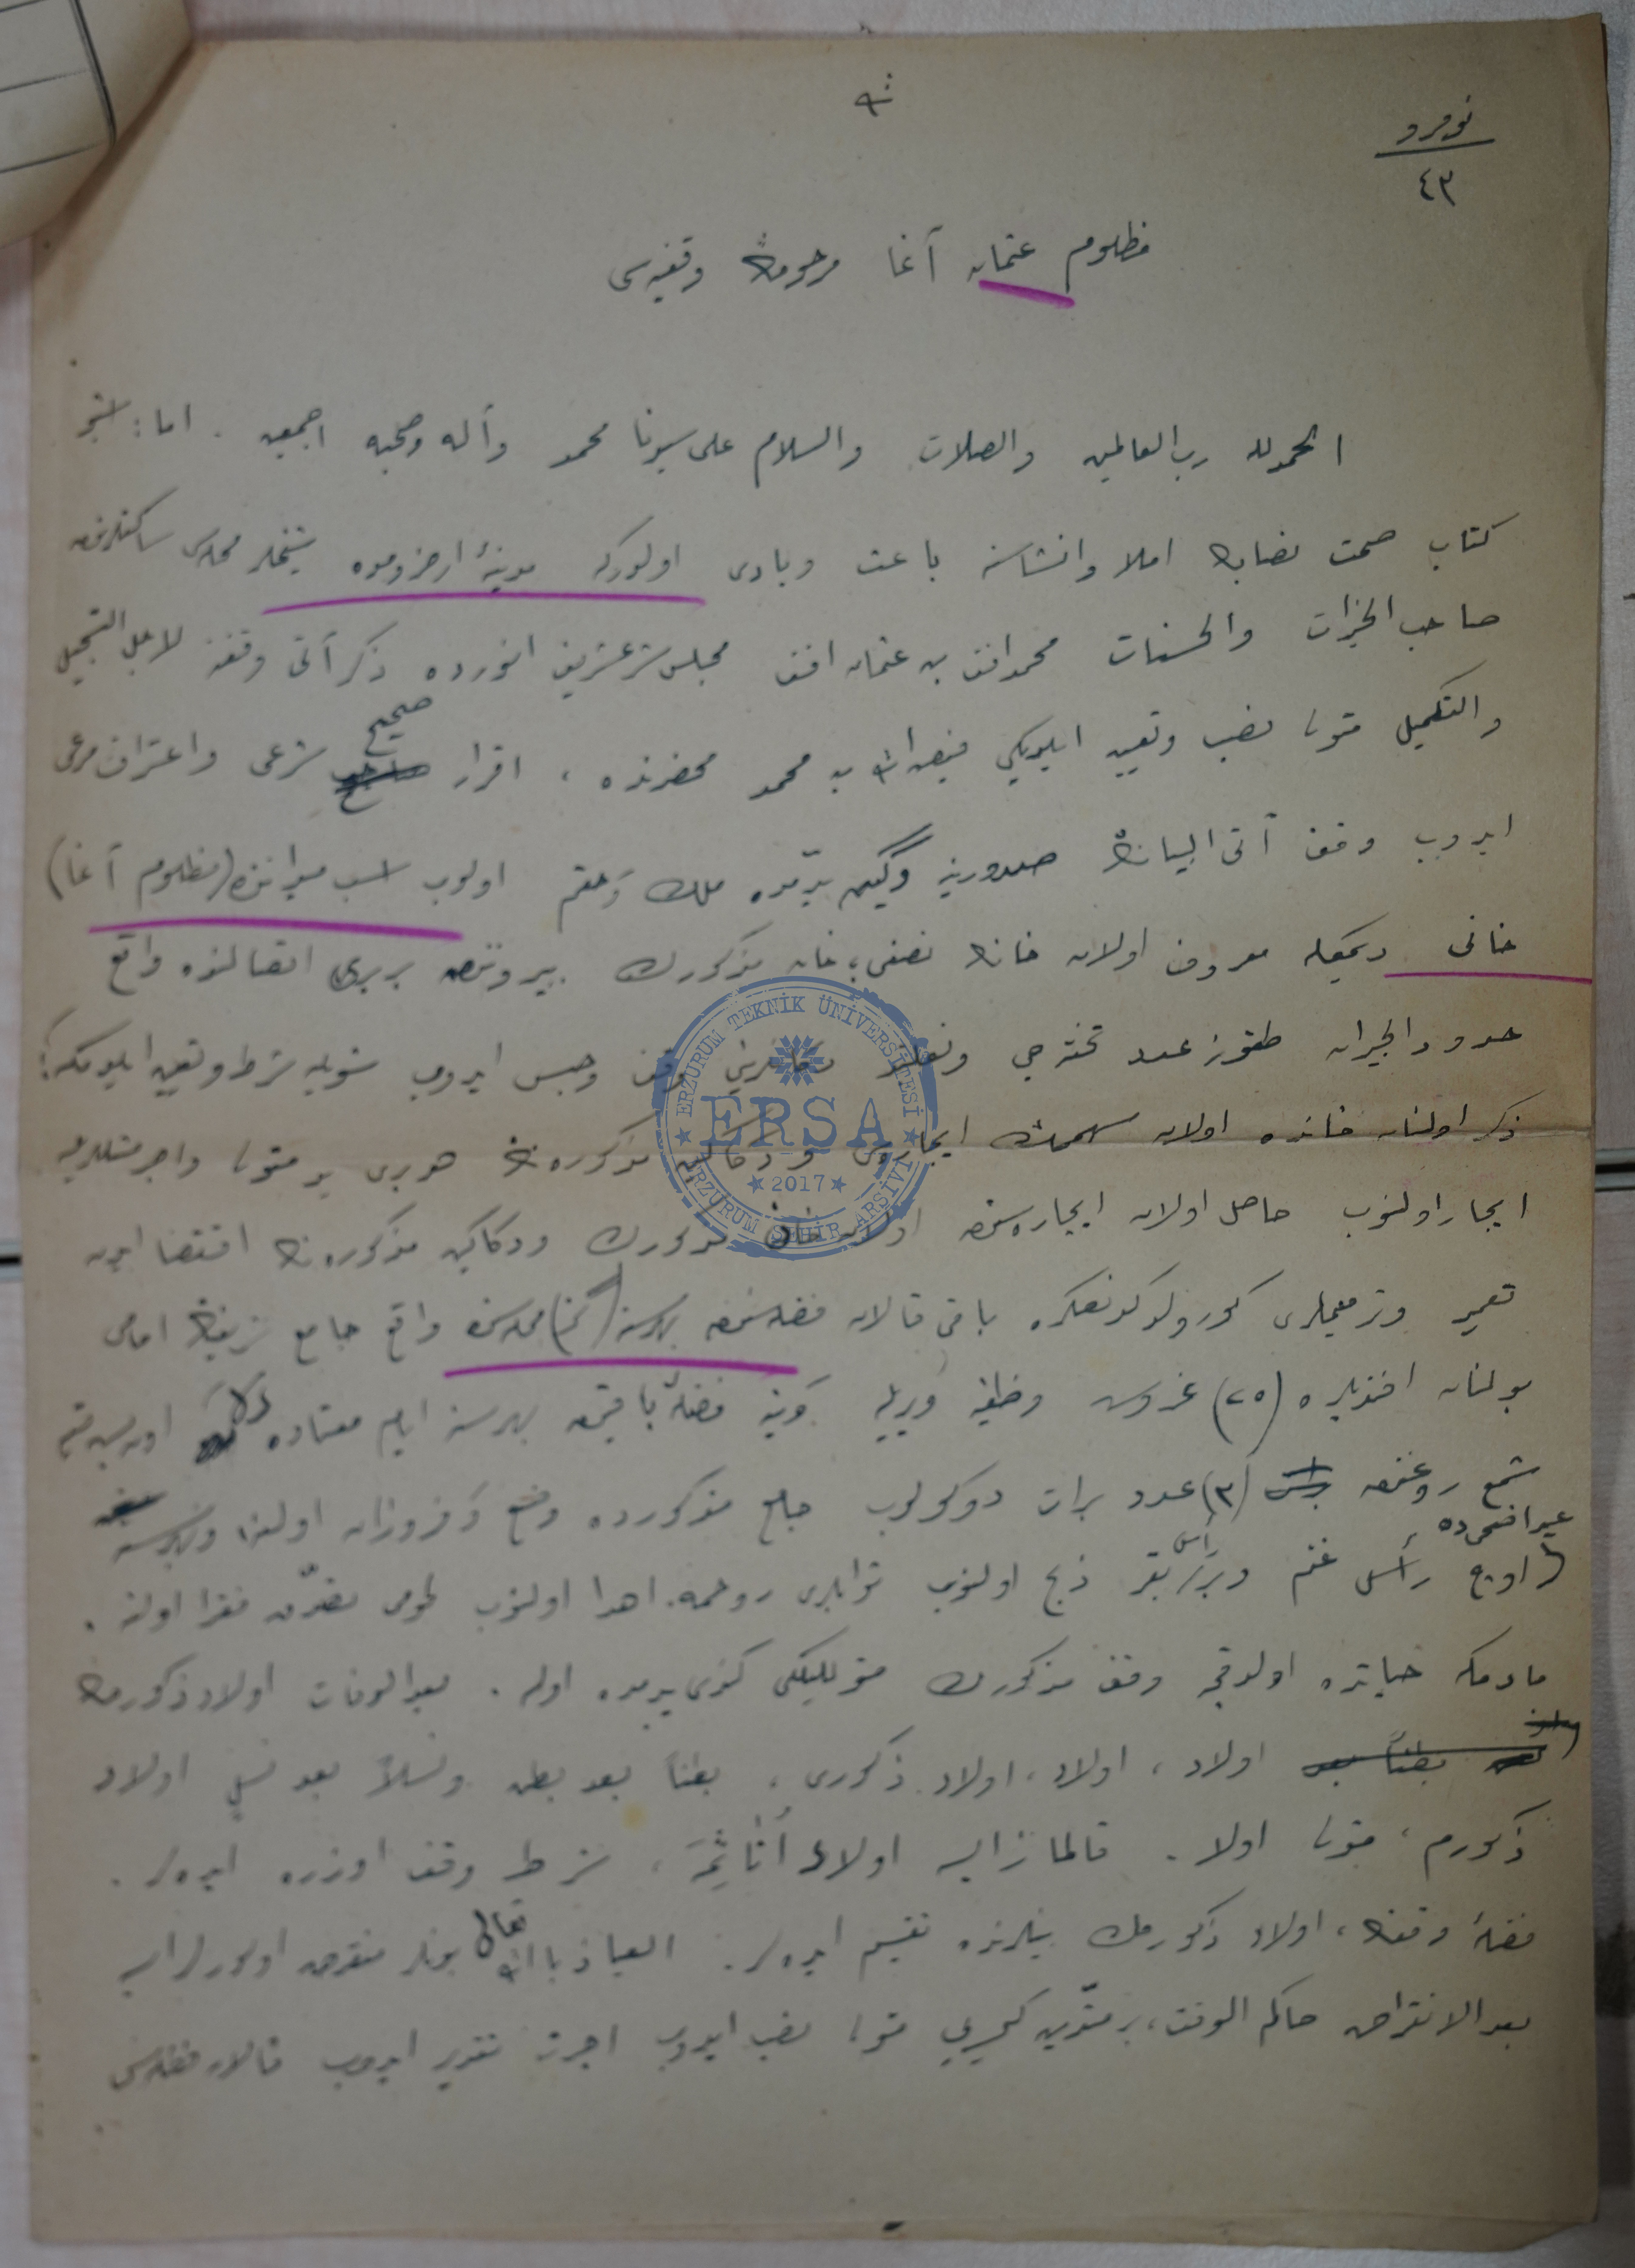 نومرو
٤٣
مظلوم عثمان آغا مرحومك وقفيه‌سی
الحمدلله رب العالمين والصلات والسلام على سيدنا محمد وآله وصحبه اجمعين . اما :
كتاب صحت نصابك املا وانشاسنه باعث وبادی اولدركه مدينۀ ارضرومده شيخلر محله‌سی ساكنلرندن
صاحب الخيرات والحسنات محمد افندی بن عثمان افندی مجلس شرع شريف انورده ذكر آتی وقفنه لاجل التسجيل
والتكميل متولی نصب وتعيين ايلديكی فيض الله بن محمد محضرنده ، اقرار صحيح شرعی واعتراف مرعی
ايدوب وقف آتی البيانك صدورينه دگين يدمده ملك وحقم اولوب (مظلوم آغا)
خانی ديمكله معروف اولان خانك نصفی ؛ خان مذكورك بيروننده بربری اتصالنده واقع
حدود الجيران طقوز عدد تخته‌جی ونعلبند دكانلرينی وقف وحبس ايدوب شويله شرط وتعيين ايلدمكه :
ذكر اولنان خانده اولان سهمك ايجاره‌سی و دكاكين مذكوره‌نك هربری يد متولی واجر مثللريله
ايجار اولنوب حاصل اولان ايجاره‌سندن اولا خان مذكورك ودكاكين مذكوره‌نك اقتضا ايدن
تعمير وترميملری كورولدكدنصكره باقی قالان فضله‌سندن بهرسنه محله‌سنده واقع جامع شريفك امامی
بولنان افنديلره (٢٥) غروش وظيفه ويريله وينه فضلۀ باقيه‌دن بهرسنه ايام معتاده
شمع روغندن (٣) عدد برات دوكولوب جامع مذكورده وضع وفروزان اولنه وبهرسنه
عيد اضحی‌ده
اوچ رأس غنم وبر رأس بقر ذبح اولنوب ثوابلری روحمه اهدا اولنوب لحومی تصدق فقرا اولنه .
مادمكه حياتده اولدقجه وقف مذكورك متوليلكی كندی يدمده اوله . بعد الوفات اولاد ذكورمك
اولاد ، اولاد ، اولاد ذكوری ، بطناً بعد بطن ونسلاً بعد نسل اولاد
ذكورم ، متولی اولا . قالمازلرايسه اولاد أناثيمه ، شرط وقف اوزره ايده‌لر .
فضلۀ وقفك ، اولاد ذكورمك بينلرنده تقسيم ايده‌لر . العياذ بالله تعالی بونلر منقرض اولورلر ايسه
بعد الانقراض حاكم الوقت ، بر متدين كمسه‌يی متولی نصب ايدوب اجرت تقدير ايدوب قالان فضله‌سی
ERZURUM TEKNİK ÜNİVERSİTESİ
ERSA
2017
ERZURUM ŞEHİR ARŞİVİ